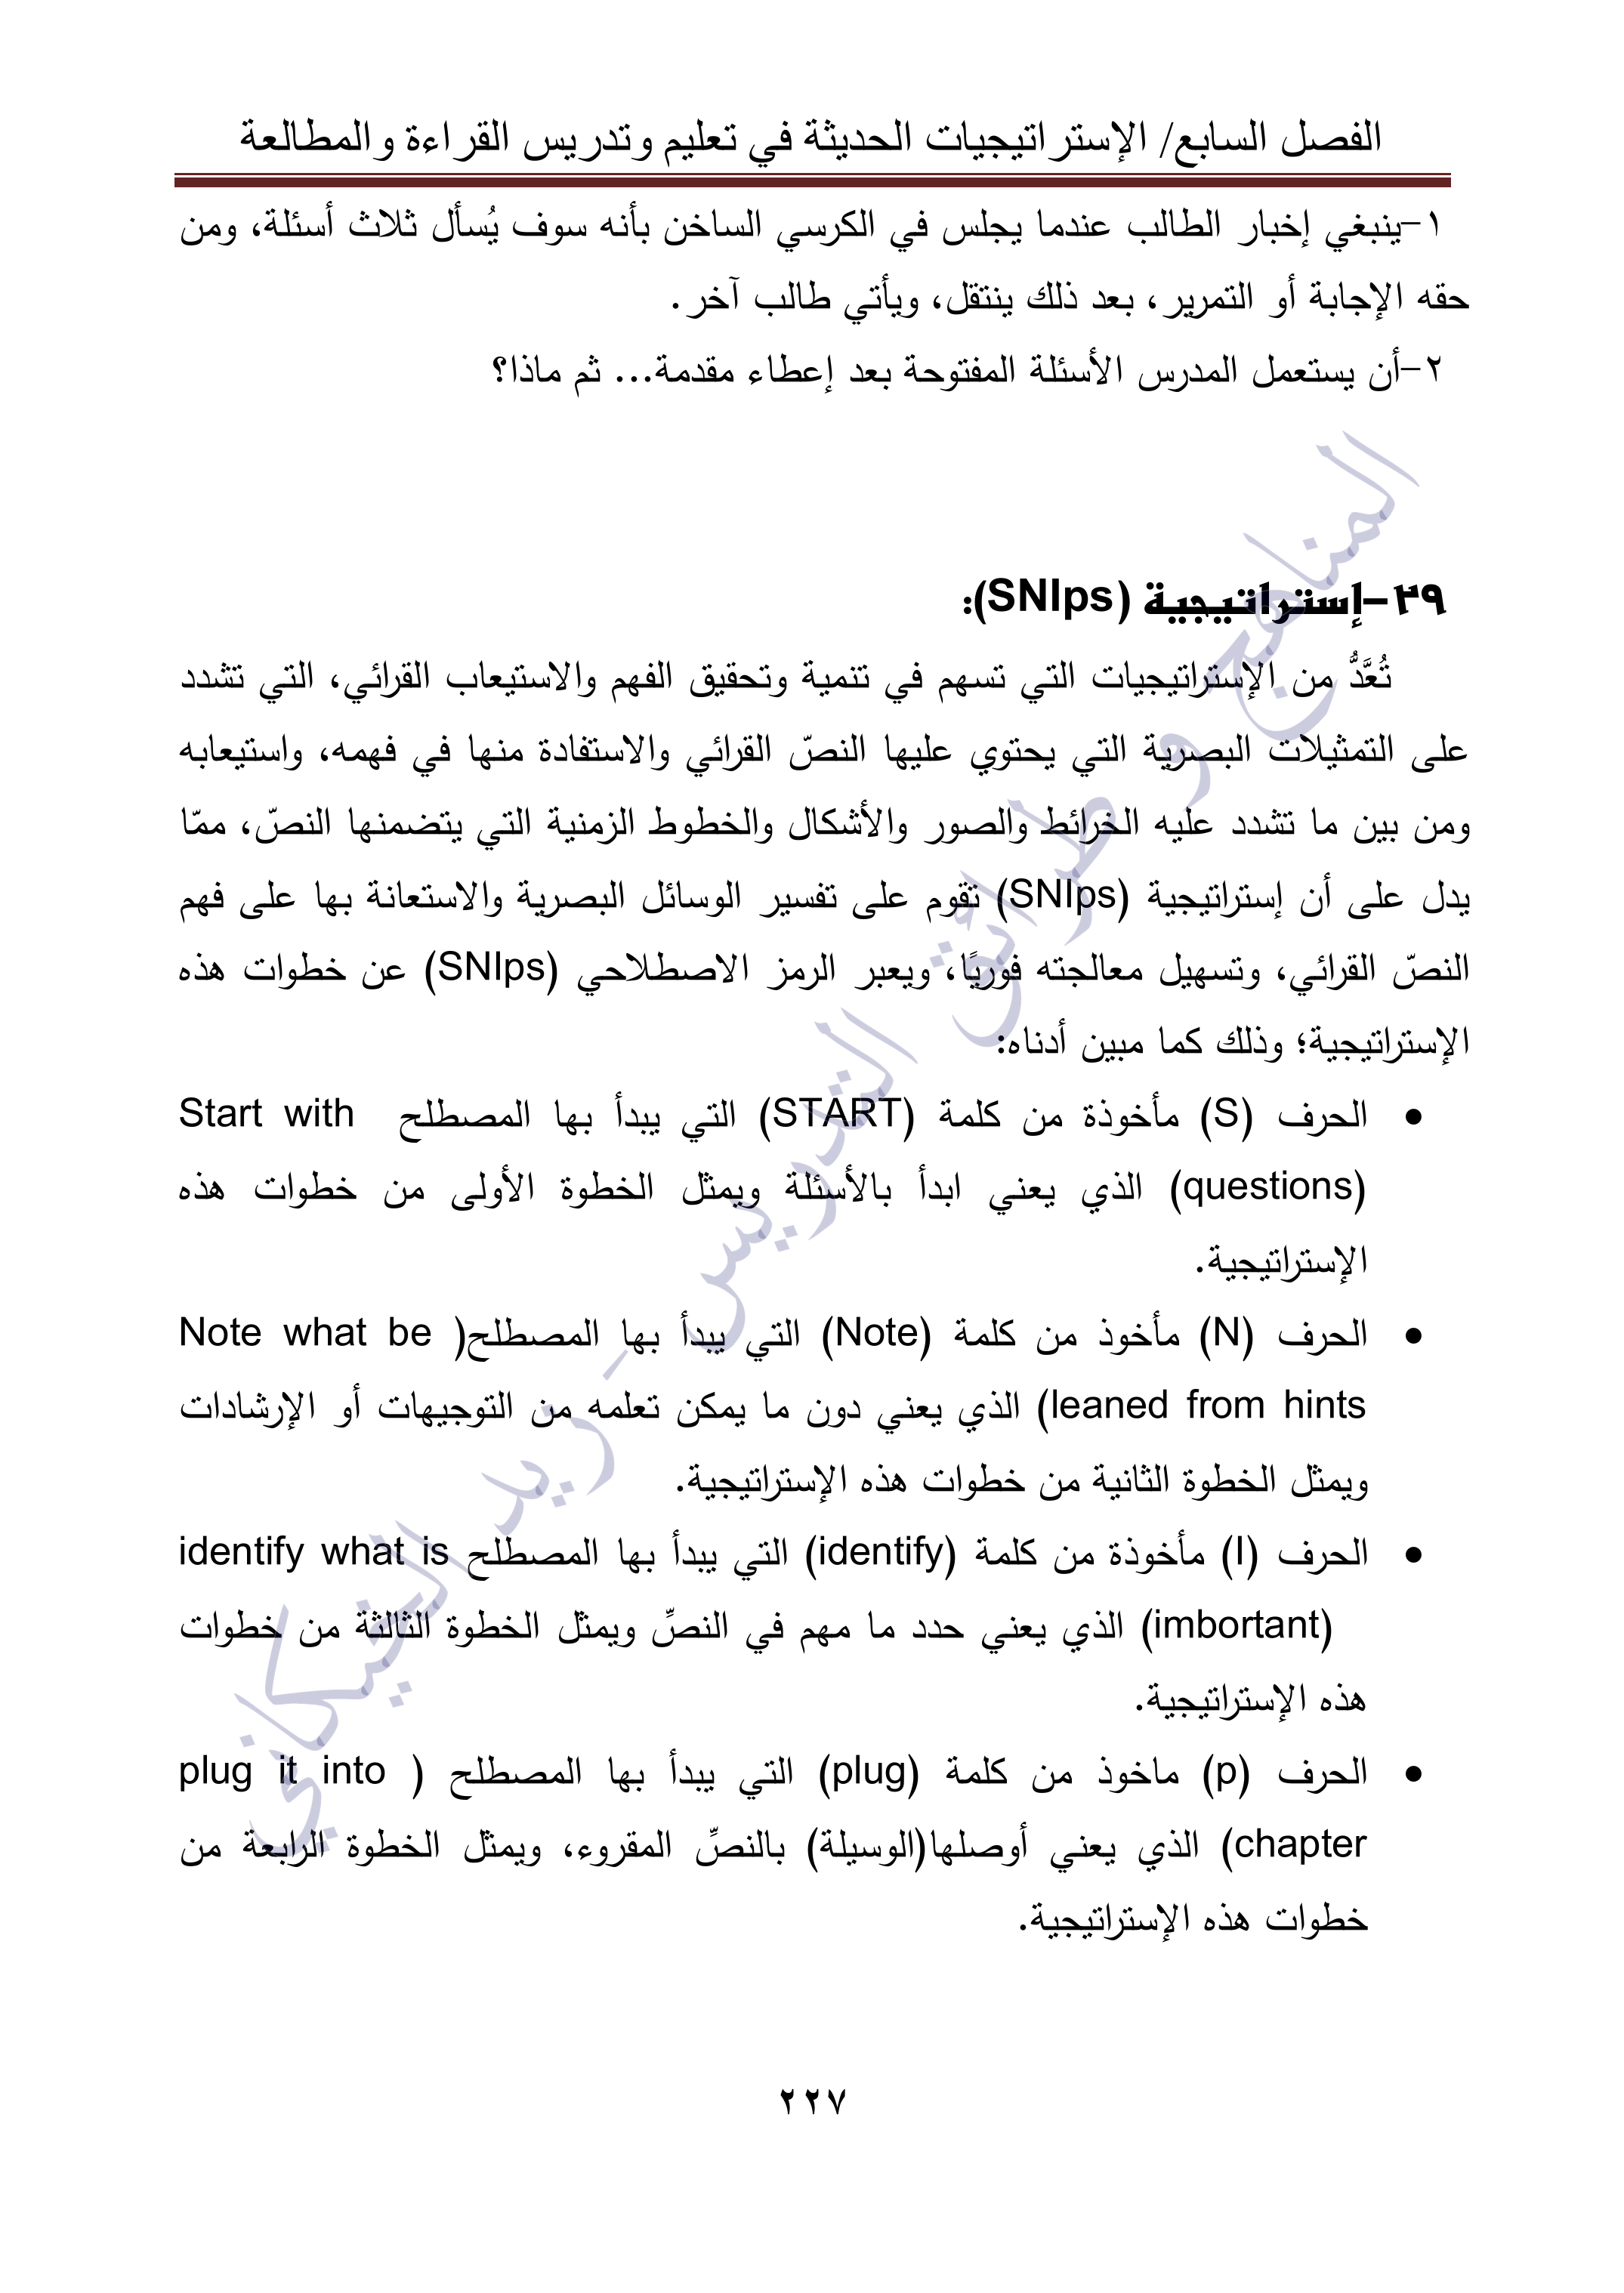 الفصل السابع/ الإستراتيجيات الحديثة في تعليم وتدريس القراءة والمطالعة
١-ينبغي إخبار الطالب عندما يجلس في الكرسي الساخن بأنه سوف يُسأل ثلاث أسئلة، ومن
حقه الإجابة أو التمرير، بعد ذلك ينتقل، ويأتي طالب آخر.
٢-أن يستعمل المدرس الأسئلة المفتوحة بعد إعطاء مقدمة... ثم ماذا؟
٣٩-إستراتيجية (SNIps):
تُعَدُّ من الإستراتيجيات التي تسهم في تنمية وتحقيق الفهم والاستيعاب القرائي، التي تشدد
على التمثيلات البصرية التي يحتوي عليها النصّ القرائي والاستفادة منها في فهمه، واستيعابه
ومن بين ما تشدد عليه الخرائط والصور والأشكال والخطوط الزمنية التي يتضمنها النصّ، ممّا
يدل على أن إستراتيجية (SNIps) تقوم على تفسير الوسائل البصرية والاستعانة بها على فهم
النصّ القرائي، وتسهيل معالجته فوريًا، ويعبر الرمز الاصطلاحي (SNIps) عن خطوات هذه
الإستراتيجية؛ وذلك كما مبين أدناه:
• الحرف (S) مأخوذة من كلمة (START) التي يبدأ بها المصطلح Start with
(questions) الذي يعني ابدأ بالأسئلة ويمثل الخطوة الأولى من خطوات هذه
الإستراتيجية.
• الحرف (N) مأخوذ من كلمة (Note) التي يبدأ بها المصطلح( Note what be
leaned from hints) الذي يعني دون ما يمكن تعلمه من التوجيهات أو الإرشادات
ويمثل الخطوة الثانية من خطوات هذه الإستراتيجية.
• الحرف (I) مأخوذة من كلمة (identify) التي يبدأ بها المصطلح identify what is
(imbortant) الذي يعني حدد ما مهم في النصِّ ويمثل الخطوة الثالثة من خطوات
هذه الإستراتيجية.
• الحرف (p) ماخوذ من كلمة (plug) التي يبدأ بها المصطلح ( plug it into
chapter) الذي يعني أوصلها(الوسيلة) بالنصِّ المقروء، ويمثل الخطوة الرابعة من
خطوات هذه الإستراتيجية.
المناهج و طرائق التدريس - زيد الخيكاني
٢٢٧